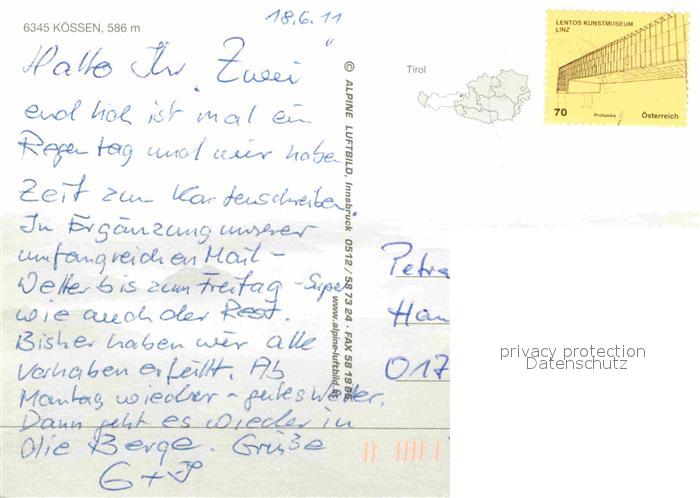 6345 KÖSSEN, 586 m
18.6.11
Hallo Ihr Zwei
endlich ist mal ein
Regentag und wir haben
Zeit zum Kartenschreiben.
In Ergänzung unserer
umfangreichen Mail -
Wetter bis zum Freitag - Super
wie auch der Rest.
Bisher haben wir alle
Vorhaben erfüllt. Ab
Montag wieder - gutes Wetter.
Dann geht es wieder in
die Berge. Grüße
G + P
© ALPINE LUFTBILD, Innsbruck 0512 / 58 73 24 · FAX 58 19 85
www.alpine-luftbild.at
Tirol
LENTOS KUNSTMUSEUM
LINZ
70
Prohaska
Österreich
Petra
Han
017
privacy protection
Datenschutz